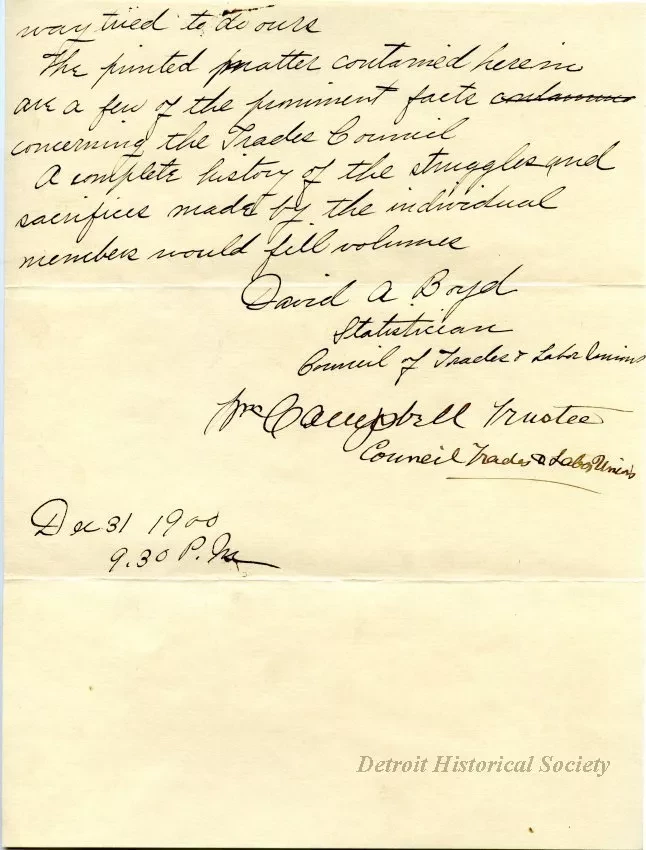 way tried to do ours
The printed matter contained herein
are a few of the prominent facts
concerning the Trades Council
A complete history of the struggles and
sacrifices made by the individual
members would fill volumes
David A Boyd
Statistician
Council of Trades & Labor Unions
Wm Campbell Trustee
Council Trades & Labor Unions
Dec 31 1900
9.30 P.M
Detroit Historical Society